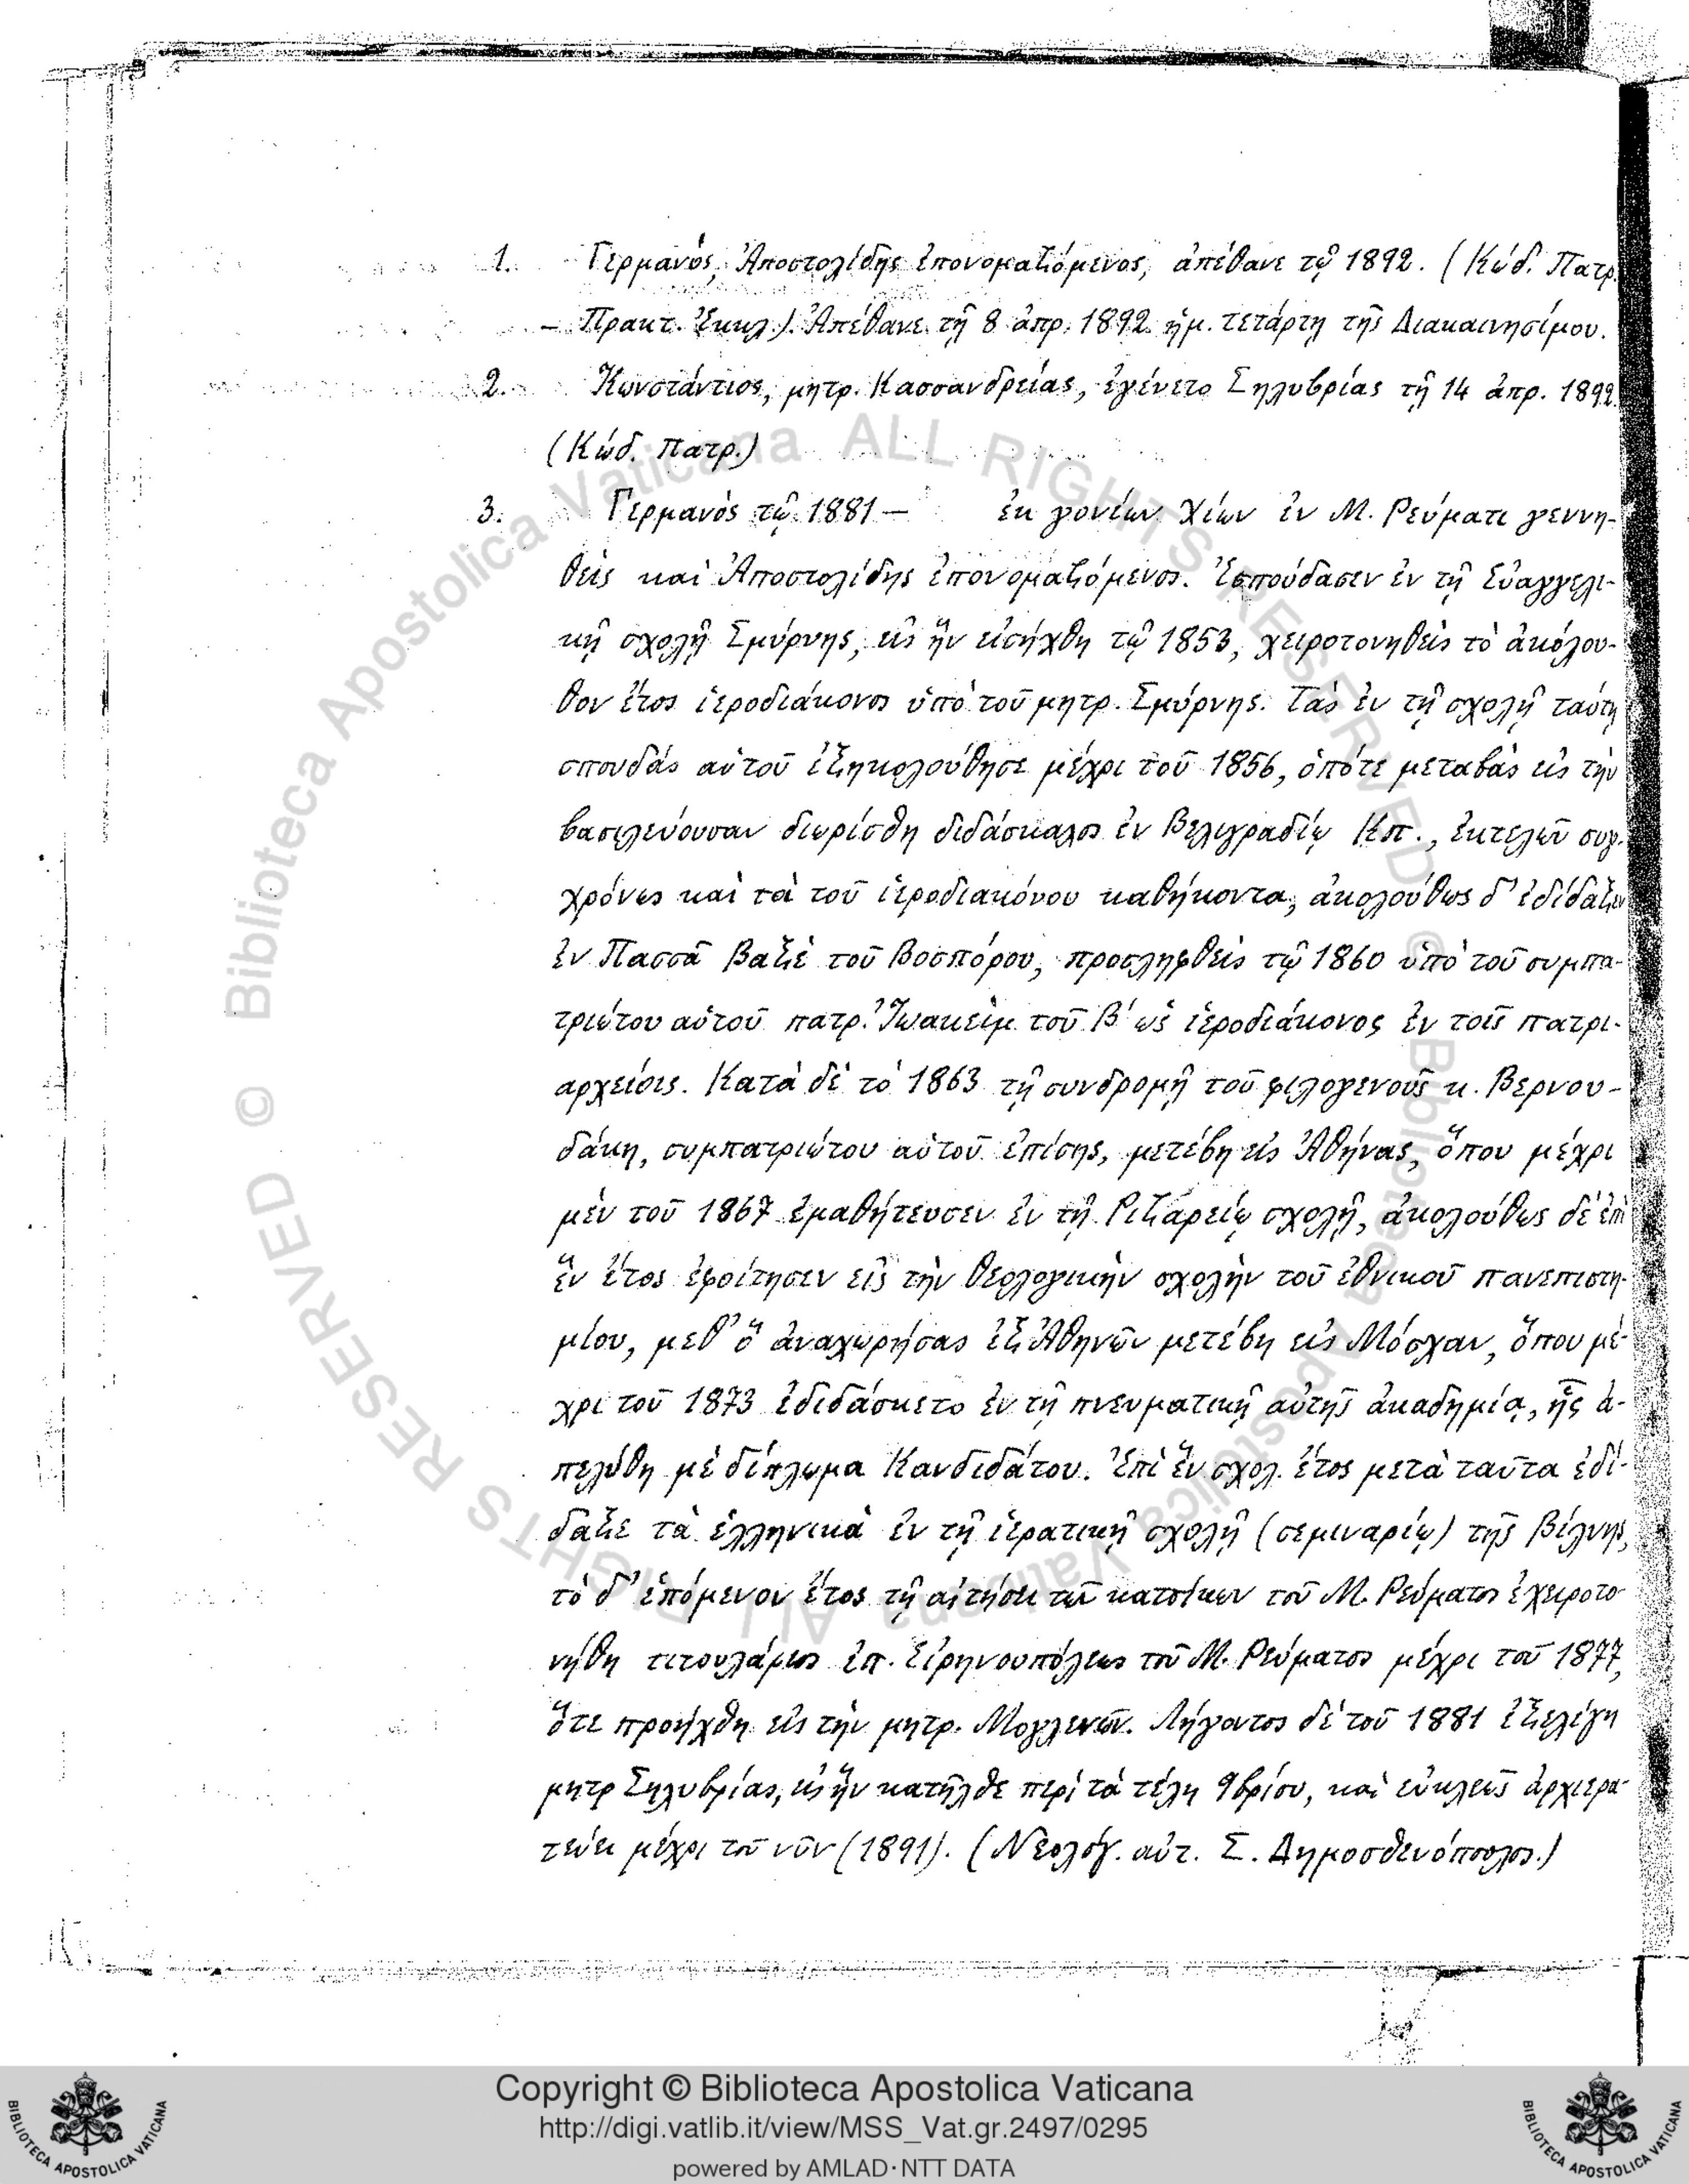 1. Γερμανός, Ἀποστολίδης ἐπονομαζόμενος, ἀπέθανε τῷ 1892. (Κώδ. Πατρ.
– Πρακτ. Ἐκκλ.). Ἀπέθανε τῇ 8 ἀπρ. 1892 ἡμ. τετάρτῃ τῆς Διακαινησίμου.
2. Κωνστάντιος, μητρ. Κασσανδρείας, ἐγένετο Σηλυβρίας τῇ 14 ἀπρ. 1892
(Κώδ. Πατρ.)
3. Γερμανὸς τῷ 1881 – ἐκ γονέων Χίων ἐν Μ. Ρεύματι γεννη-
θεὶς καὶ Ἀποστολίδης ἐπονομαζόμενος. Ἐσπούδασεν ἐν τῇ Εὐαγγελι-
κῇ σχολῇ Σμύρνης, εἰς ἣν εἰσήχθη τῷ 1853, χειροτονηθεὶς τὸ ἀκόλου-
θον ἔτος ἱεροδιάκονος ὑπὸ τοῦ μητρ. Σμύρνης. Τὰς ἐν τῇ σχολῇ ταύτῃ
σπουδὰς αὐτοῦ ἐξηκολούθησε μέχρι τοῦ 1856, ὁπότε μεταβὰς εἰς τὴν
βασιλεύουσαν διωρίσθη διδάσκαλος ἐν Βελιγραδίῳ Κπ., ἐκτελῶν συγ-
χρόνως καὶ τὰ τοῦ ἱεροδιακόνου καθήκοντα, ἀκολούθως δ' ἐδίδαξεν
ἐν Πασσᾶ Βαξὲ τοῦ Βοσπόρου, προσληφθεὶς τῷ 1860 ὑπὸ τοῦ συμπα-
τριώτου αὐτοῦ πατρ. Ἰωακεὶμ τοῦ Β' ὡς ἱεροδιάκονος ἐν τοῖς πατρι-
αρχείοις. Κατὰ δὲ τὸ 1863 τῇ συνδρομῇ τοῦ φιλογενοῦς κ. Βερνου-
δάκη, συμπατριώτου αὐτοῦ ἐπίσης, μετέβη εἰς Ἀθήνας, ὅπου μέχρι
μὲν τοῦ 1867 ἐμαθήτευσεν ἐν τῇ Ριζαρείῳ σχολῇ, ἀκολούθως δὲ ἐπὶ
ἓν ἔτος ἐφοίτησεν εἰς τὴν θεολογικὴν σχολὴν τοῦ ἐθνικοῦ πανεπιστη-
μίου, μεθ' ὃ ἀναχωρήσας ἐξ Ἀθηνῶν μετέβη εἰς Μόσχαν, ὅπου μέ-
χρι τοῦ 1873 ἐδιδάσκετο ἐν τῇ πνευματικῇ αὐτῆς ἀκαδημίᾳ, ἧς ἀ-
πελύθη μὲ δίπλωμα Κανδιδάτου. Ἐπὶ ἓν σχολ. ἔτος μετὰ ταῦτα ἐδί-
δαξε τὰ ἑλληνικὰ ἐν τῇ ἱερατικῇ σχολῇ (σεμιναρίῳ) τῆς Βίλνης,
τὸ δ' ἑπόμενον ἔτος τῇ αἰτήσει τῶν κατοίκων τοῦ Μ. Ρεύματος ἐχειροτο-
νήθη τιτουλάριος ἐπ. Εἰρηνουπόλεως τοῦ Μ. Ρεύματος μέχρι τοῦ 1877,
ὅτε προήχθη εἰς τὴν μητρ. Μογλενῶν. Λήγοντος δὲ τοῦ 1881 ἐξελέγη
μητρ Σηλυβρίας, εἰς ἣν κατῆλθε περὶ τὰ τέλη 9βρίου, καὶ εὐκλεῶς ἀρχιερα-
τεύει μέχρι τοῦ νῦν (1891). (Νεολόγ. αὐτ. Σ. Δημοσθενόπουλος.)
© Biblioteca Apostolica Vaticana ALL RIGHTS RESERVED © Biblioteca Apostolica Vaticana ALL RIGHTS RESERVED
Copyright © Biblioteca Apostolica Vaticana
http://digi.vatlib.it/view/MSS_Vat.gr.2497/0295
powered by AMLAD·NTT DATA
BIBLIOTECA APOSTOLICA VATICANA
BIBLIOTECA APOSTOLICA VATICANA